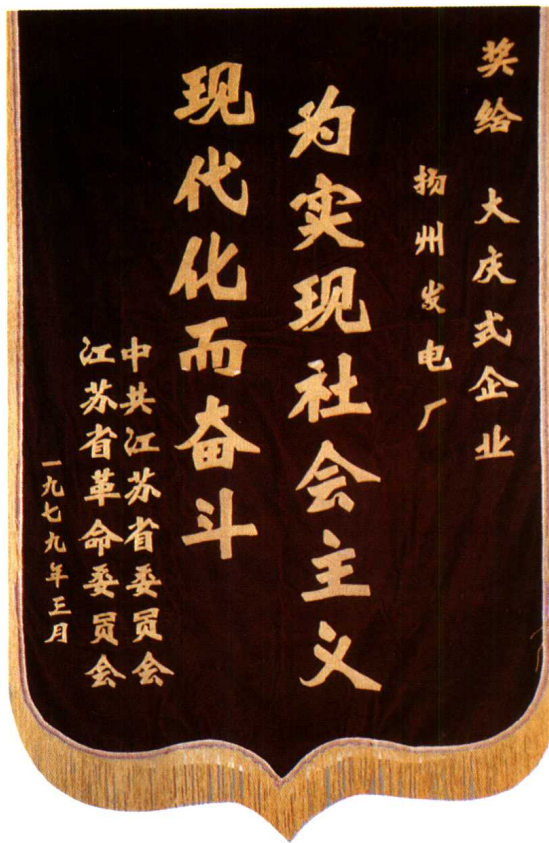 奖给 大庆式企业
扬州发电厂
为实现社会主义
现代化而奋斗
中共江苏省委员会
江苏省革命委员会
一九七九年三月